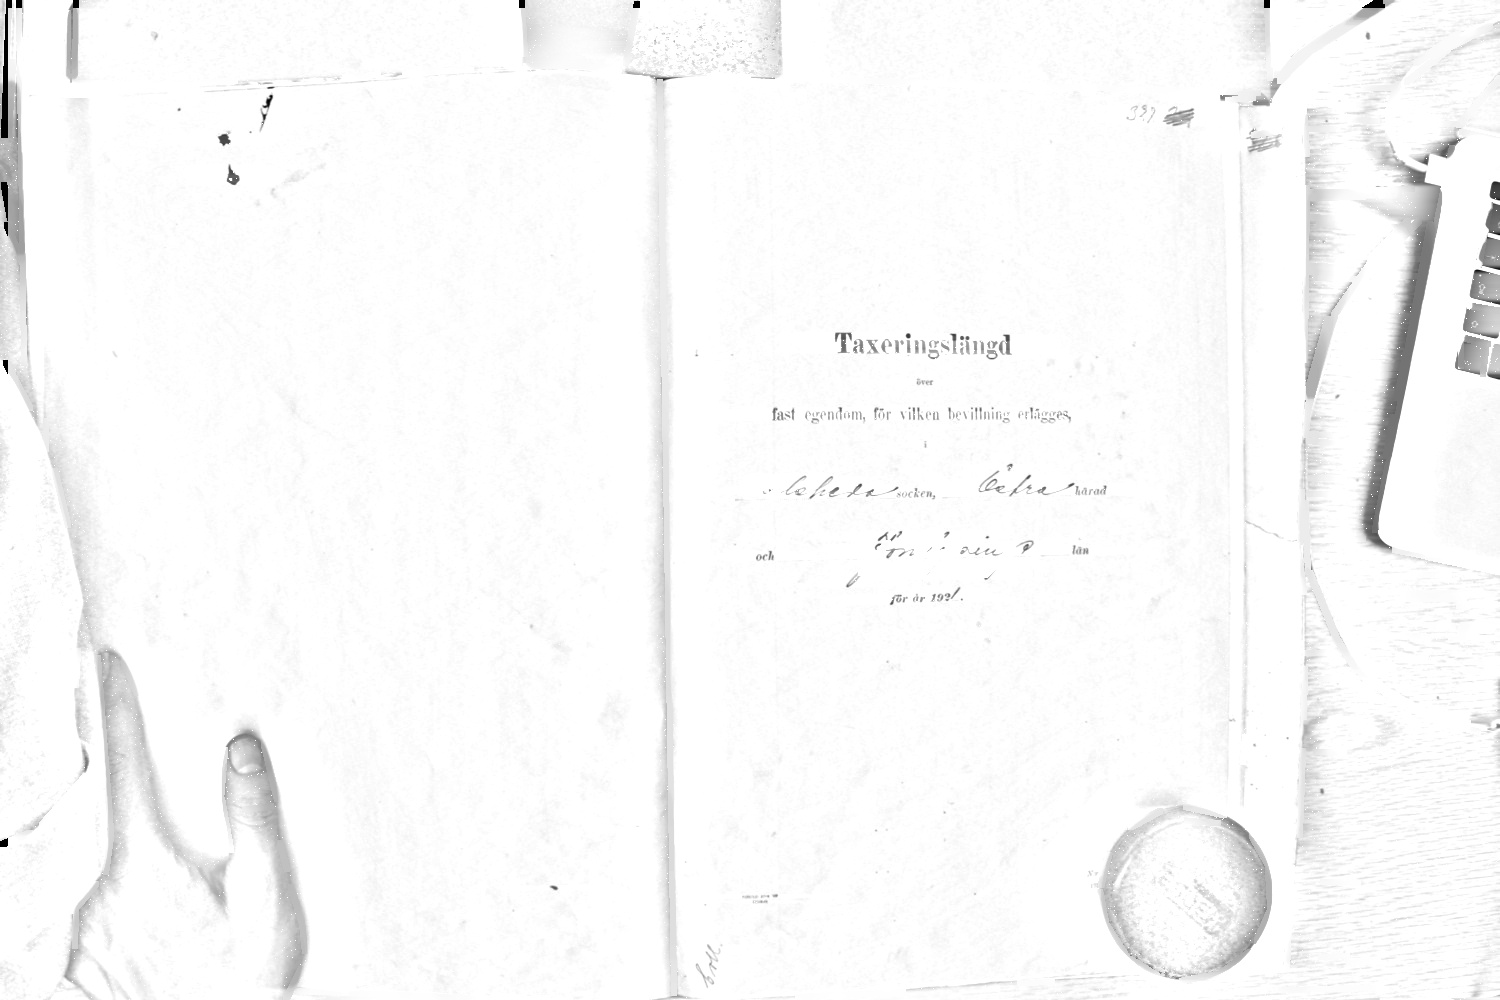 Taxeringslängd
över
fast egendom, för vilken bevillning erlägges,
i
socken, Östra härad
och län
för år 1921.
Coll.